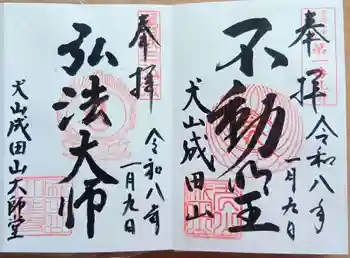 奉拝
令和八年
一月九日
不動明王
犬山成田山
奉拝
令和八年
一月九日
弘法大師
犬山成田山大師堂